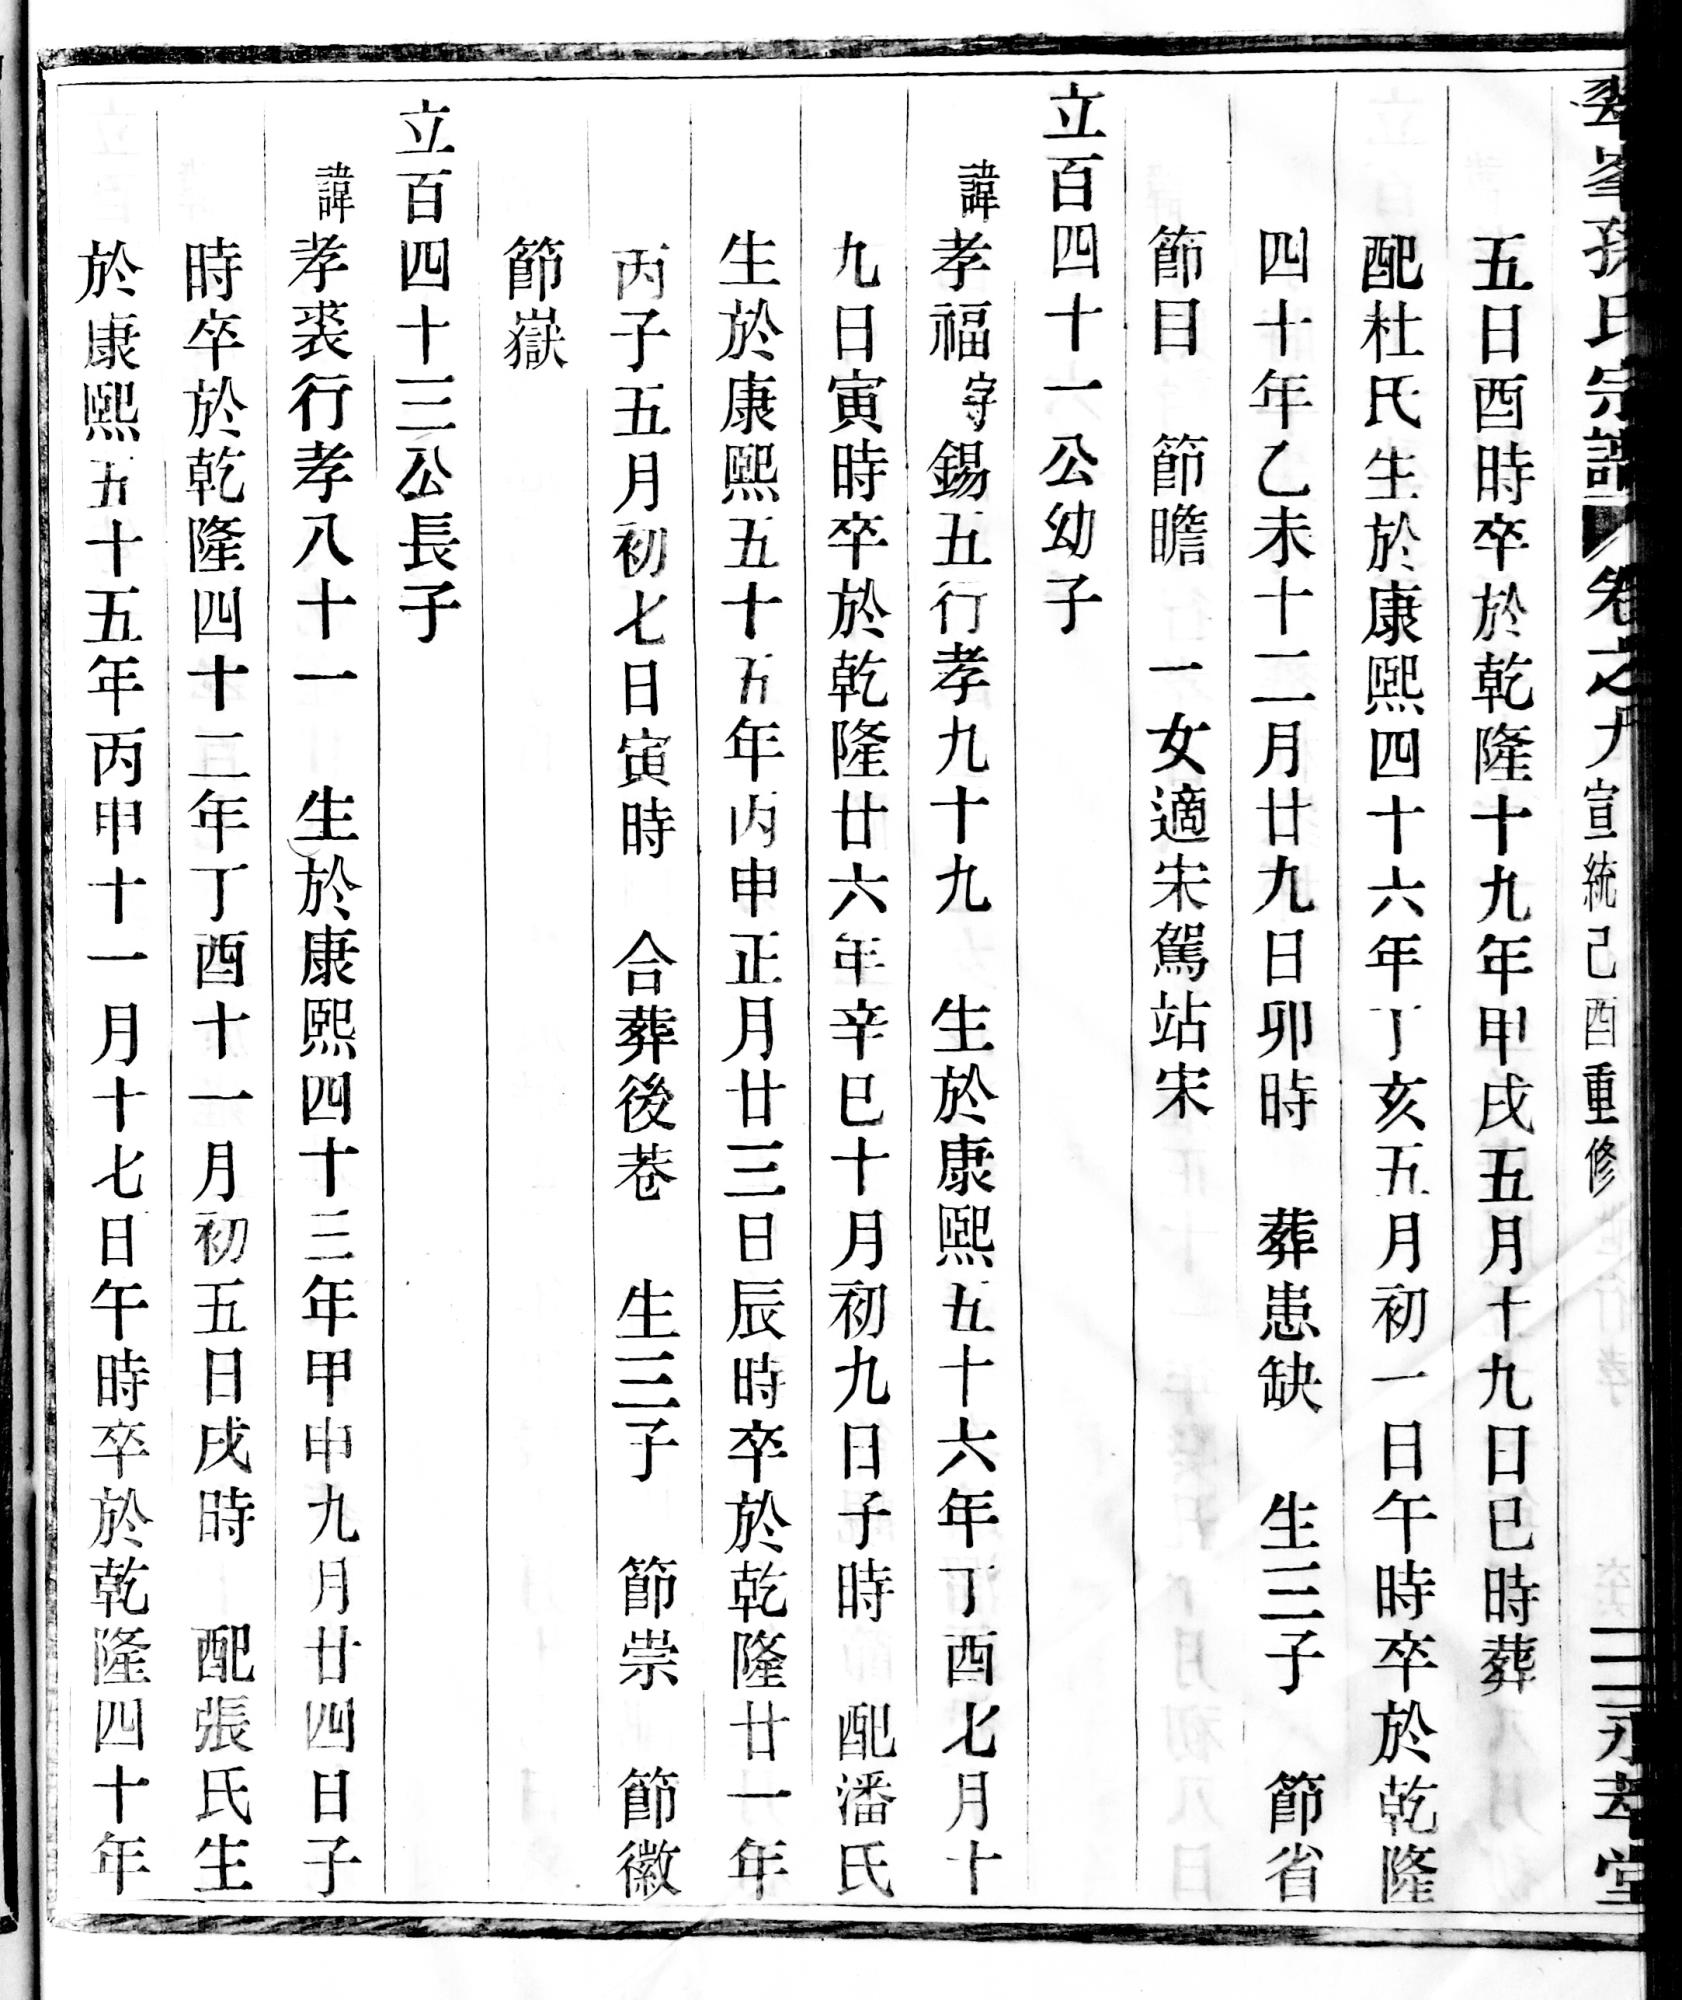 翠峯孫氏宗譜 卷之九 宣統己酉重修 二 永孝堂
五日酉時卒於乾隆十九年甲戌五月十九日巳時葬
配杜氏生於康熙四十六年丁亥五月初一日午時卒於乾隆
四十年乙未十二月廿九日卯時 葬患缺 生三子 節省
節目 節瞻 一女適宋駕站宋
立百四十一公幼子
諱孝福字錫五行孝九十九 生於康熙五十六年丁酉七月十
九日寅時卒於乾隆廿六年辛巳十月初九日子時 配潘氏
生於康熙五十五年丙申正月廿三日辰時卒於乾隆廿一年
丙子五月初七日寅時 合葬後巷 生三子 節崇 節徽
節嶽
立百四十三公長子
諱孝裘行孝八十一 生於康熙四十三年甲申九月廿四日子
時卒於乾隆四十二年丁酉十一月初五日戌時 配張氏生
於康熙五十五年丙申十一月十七日午時卒於乾隆四十年